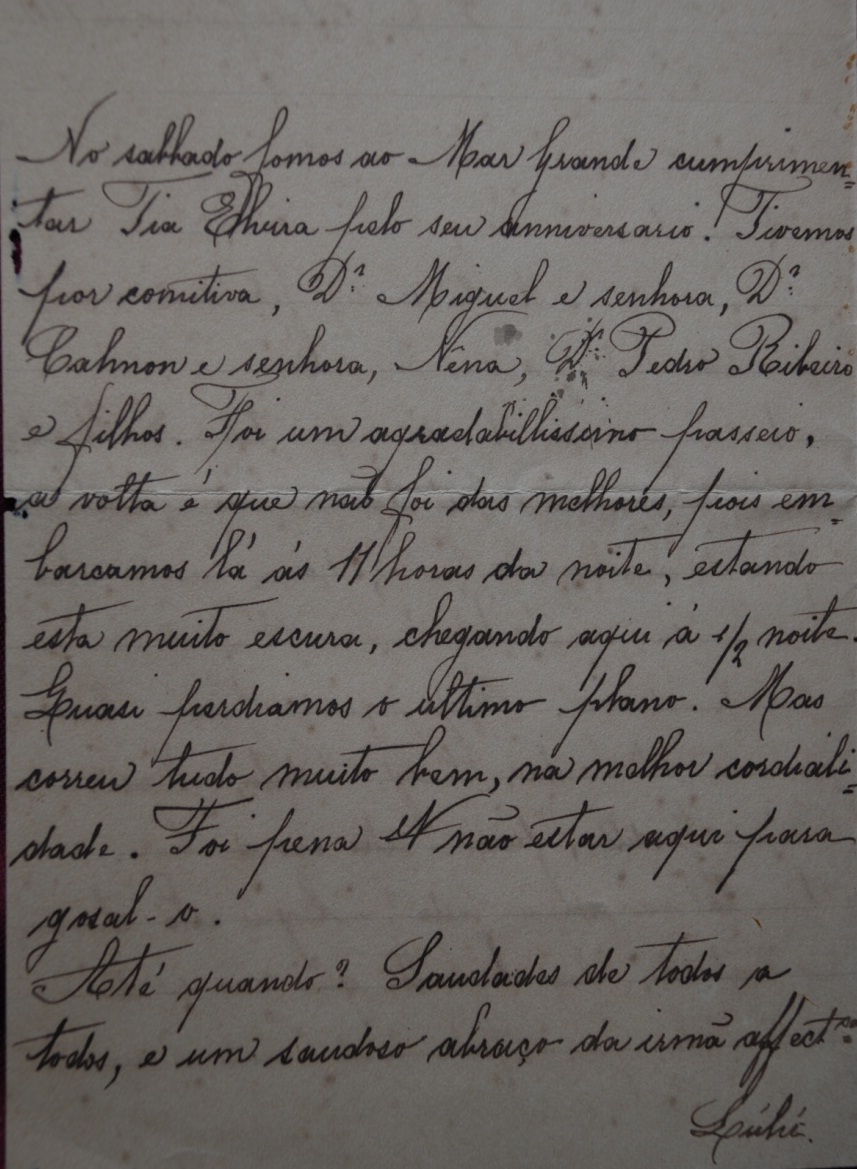 No sabbado fomos ao Mar Grande cumprimen=
tar Tia Elvira pelo seu anniversario! Tivemos
por comitiva, Dr. Miguel e senhora, Dr.
Calmon e senhora, Nêna, Dr. Pedro Ribeiro
e filhos. Foi um agradabillissimo passeio,
a volta é que não foi das melhores, pois em=
barcamos lá ás 11 horas da noite, estando
esta muito escura, chegando aqui á 1/2 noite.
Quasi perdiamos o ultimo plano. Mas
correu tudo muito bem, na melhor cordiali=
dade. Foi pena V não estar aqui para
gosal-o.
Até quando? Saudades de todos a
todos, e um saudoso abraço da irmã affectsa.